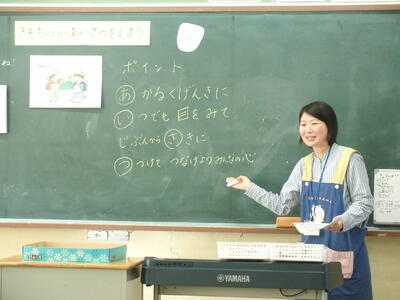 きもちのいいあいさつをしよう
ポイント
あかるくげんきに
いつでも目をみて
じぶんからさきに
つづけて つなげようみんなの心
YAMAHA